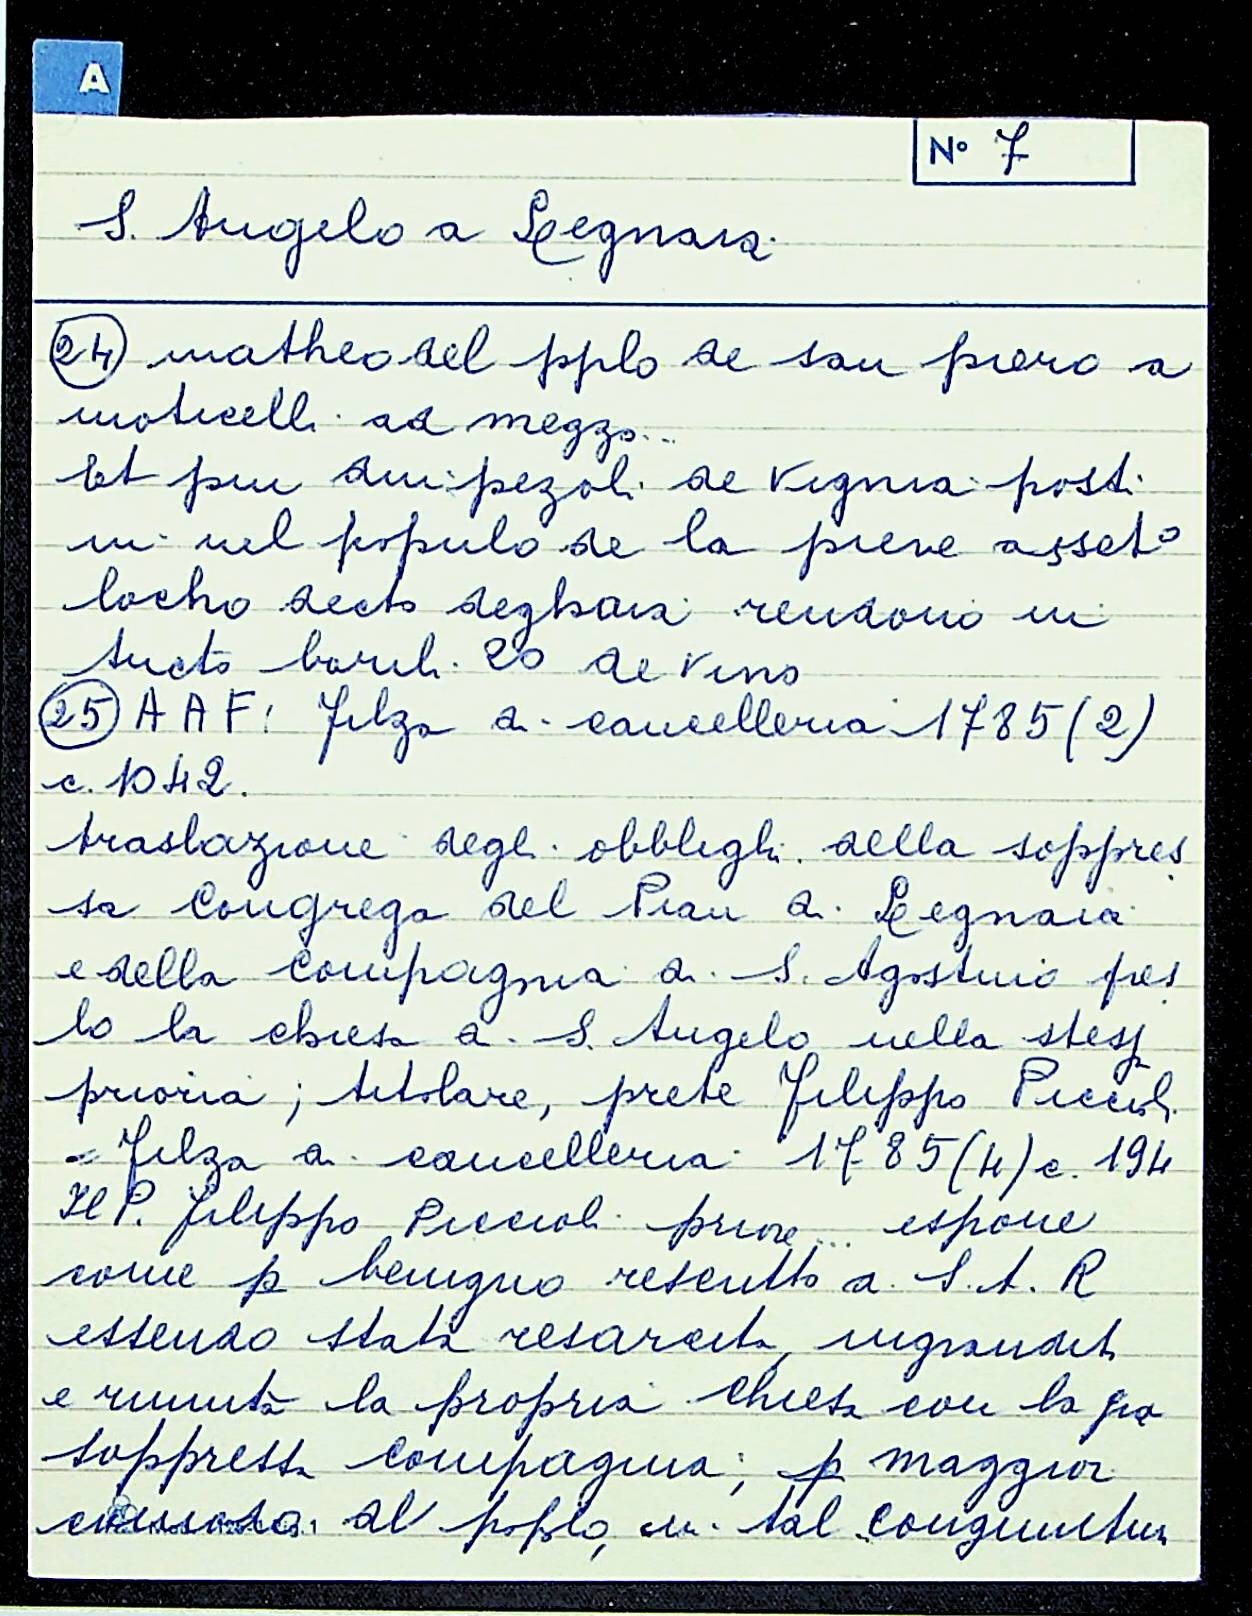 A
N° 7
S. Angelo a Legnaia
24 matheo del pplo de san piero a
moticelli ad mezzo...
Et piu dui pezoli de vignia posti
in nel populo de la pieve a sseto
locho decto deghaia rendono in
tucto barili 20 de vino
25 AAF: Filza di cancelleria 1785(2)
c. 1042.
traslazione degli obblighi della soppres
sa Congrega del Pian di Legnaia
e della compagnia di S. Agostino
la chiesa di S. Angelo nella stessa
prioria; titolare, prete Filippo Piccioli
= Filza di cancelleria 1785(4) c. 194
Il P. Filippo Piccioli priore... espone
come p benigno rescritto di S.A.R
essendo stata resarcita, ingrandita
e riunita la propria chiesa con la già
soppressa compagnia; p maggior
al poplo, in tal congiuntura